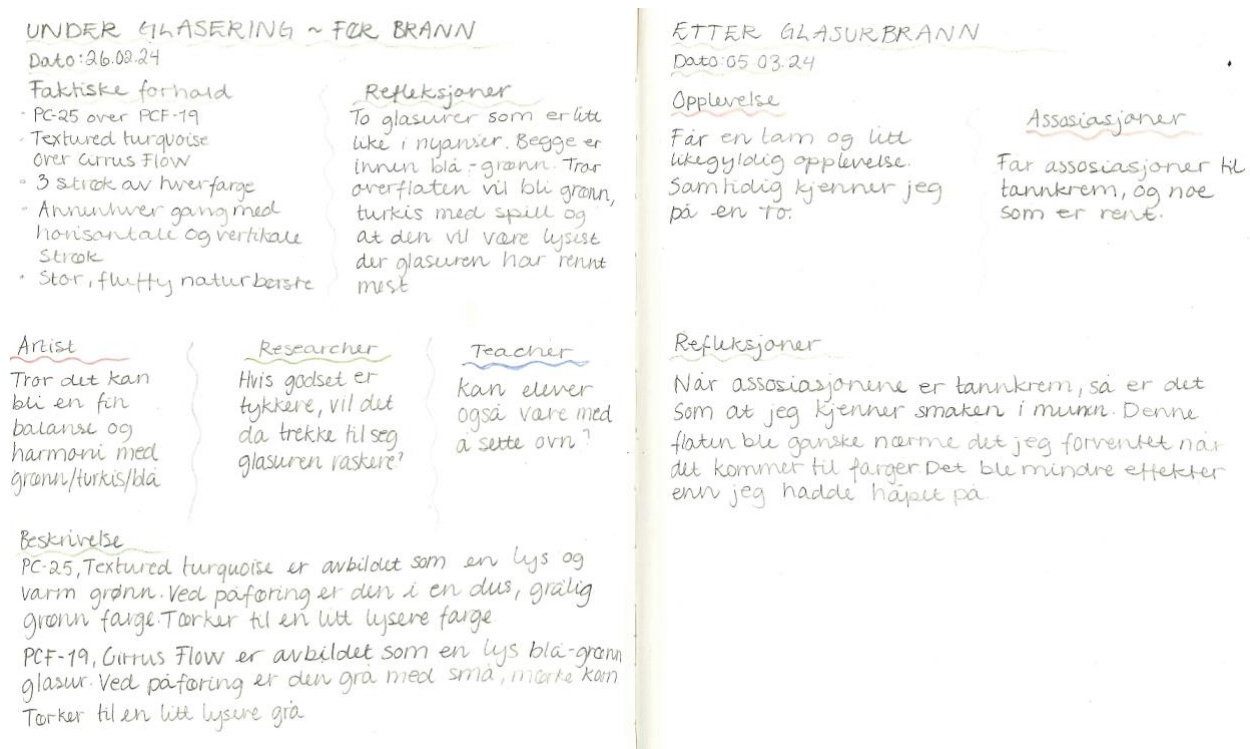 UNDER GLASERING ~ FØR BRANN
Dato: 26.02.24
Faktiske forhold
- PC-25 over PCF-19
- Textured turquoise
over Cirrus Flow
- 3 strøk av hver farge
- Annenhver gang med
horisontale og vertikale
strøk
- Stor, fluffy naturbørste
Refleksjoner
To glasurer som er litt
like i nyanser. Begge er
innen blå-grønn. Tror
overflaten vil bli grønn,
turkis med spill og
at den vil være lysest
der glasuren har rennt
mest
Artist
Tror det kan
bli en fin
balanse og
harmoni med
grønn/turkis/blå
Researcher
Hvis godset er
tykkere, vil det
da trekke til seg
glasuren raskere?
Teacher
Kan elever
også være med
å sette ovn?
Beskrivelse
PC-25, Textured turquoise er avbildet som en lys og
varm grønn. Ved påføring er den i en dus, grålig
grønn farge. Tørker til en litt lysere farge
PCF-19, Cirrus Flow er avbildet som en lys blå-grønn
glasur. Ved påføring er den grå med små, mørke korn
Tørker til en litt lysere grå
ETTER GLASURBRANN
Dato: 05.03.24
Opplevelse
Får en lam og litt
likegyldig opplevelse.
Samtidig kjenner jeg
på en ro.
Assosiasjoner
Får assosiasjoner til
tannkrem, og noe
som er rent.
Refleksjoner
Når assosiasjonene er tannkrem, så er det
som at jeg kjenner smaken i munnen. Denne
flaten ble ganske nærme det jeg forventet når
det kommer til farger. Det ble mindre effekter
enn jeg hadde håpet på.